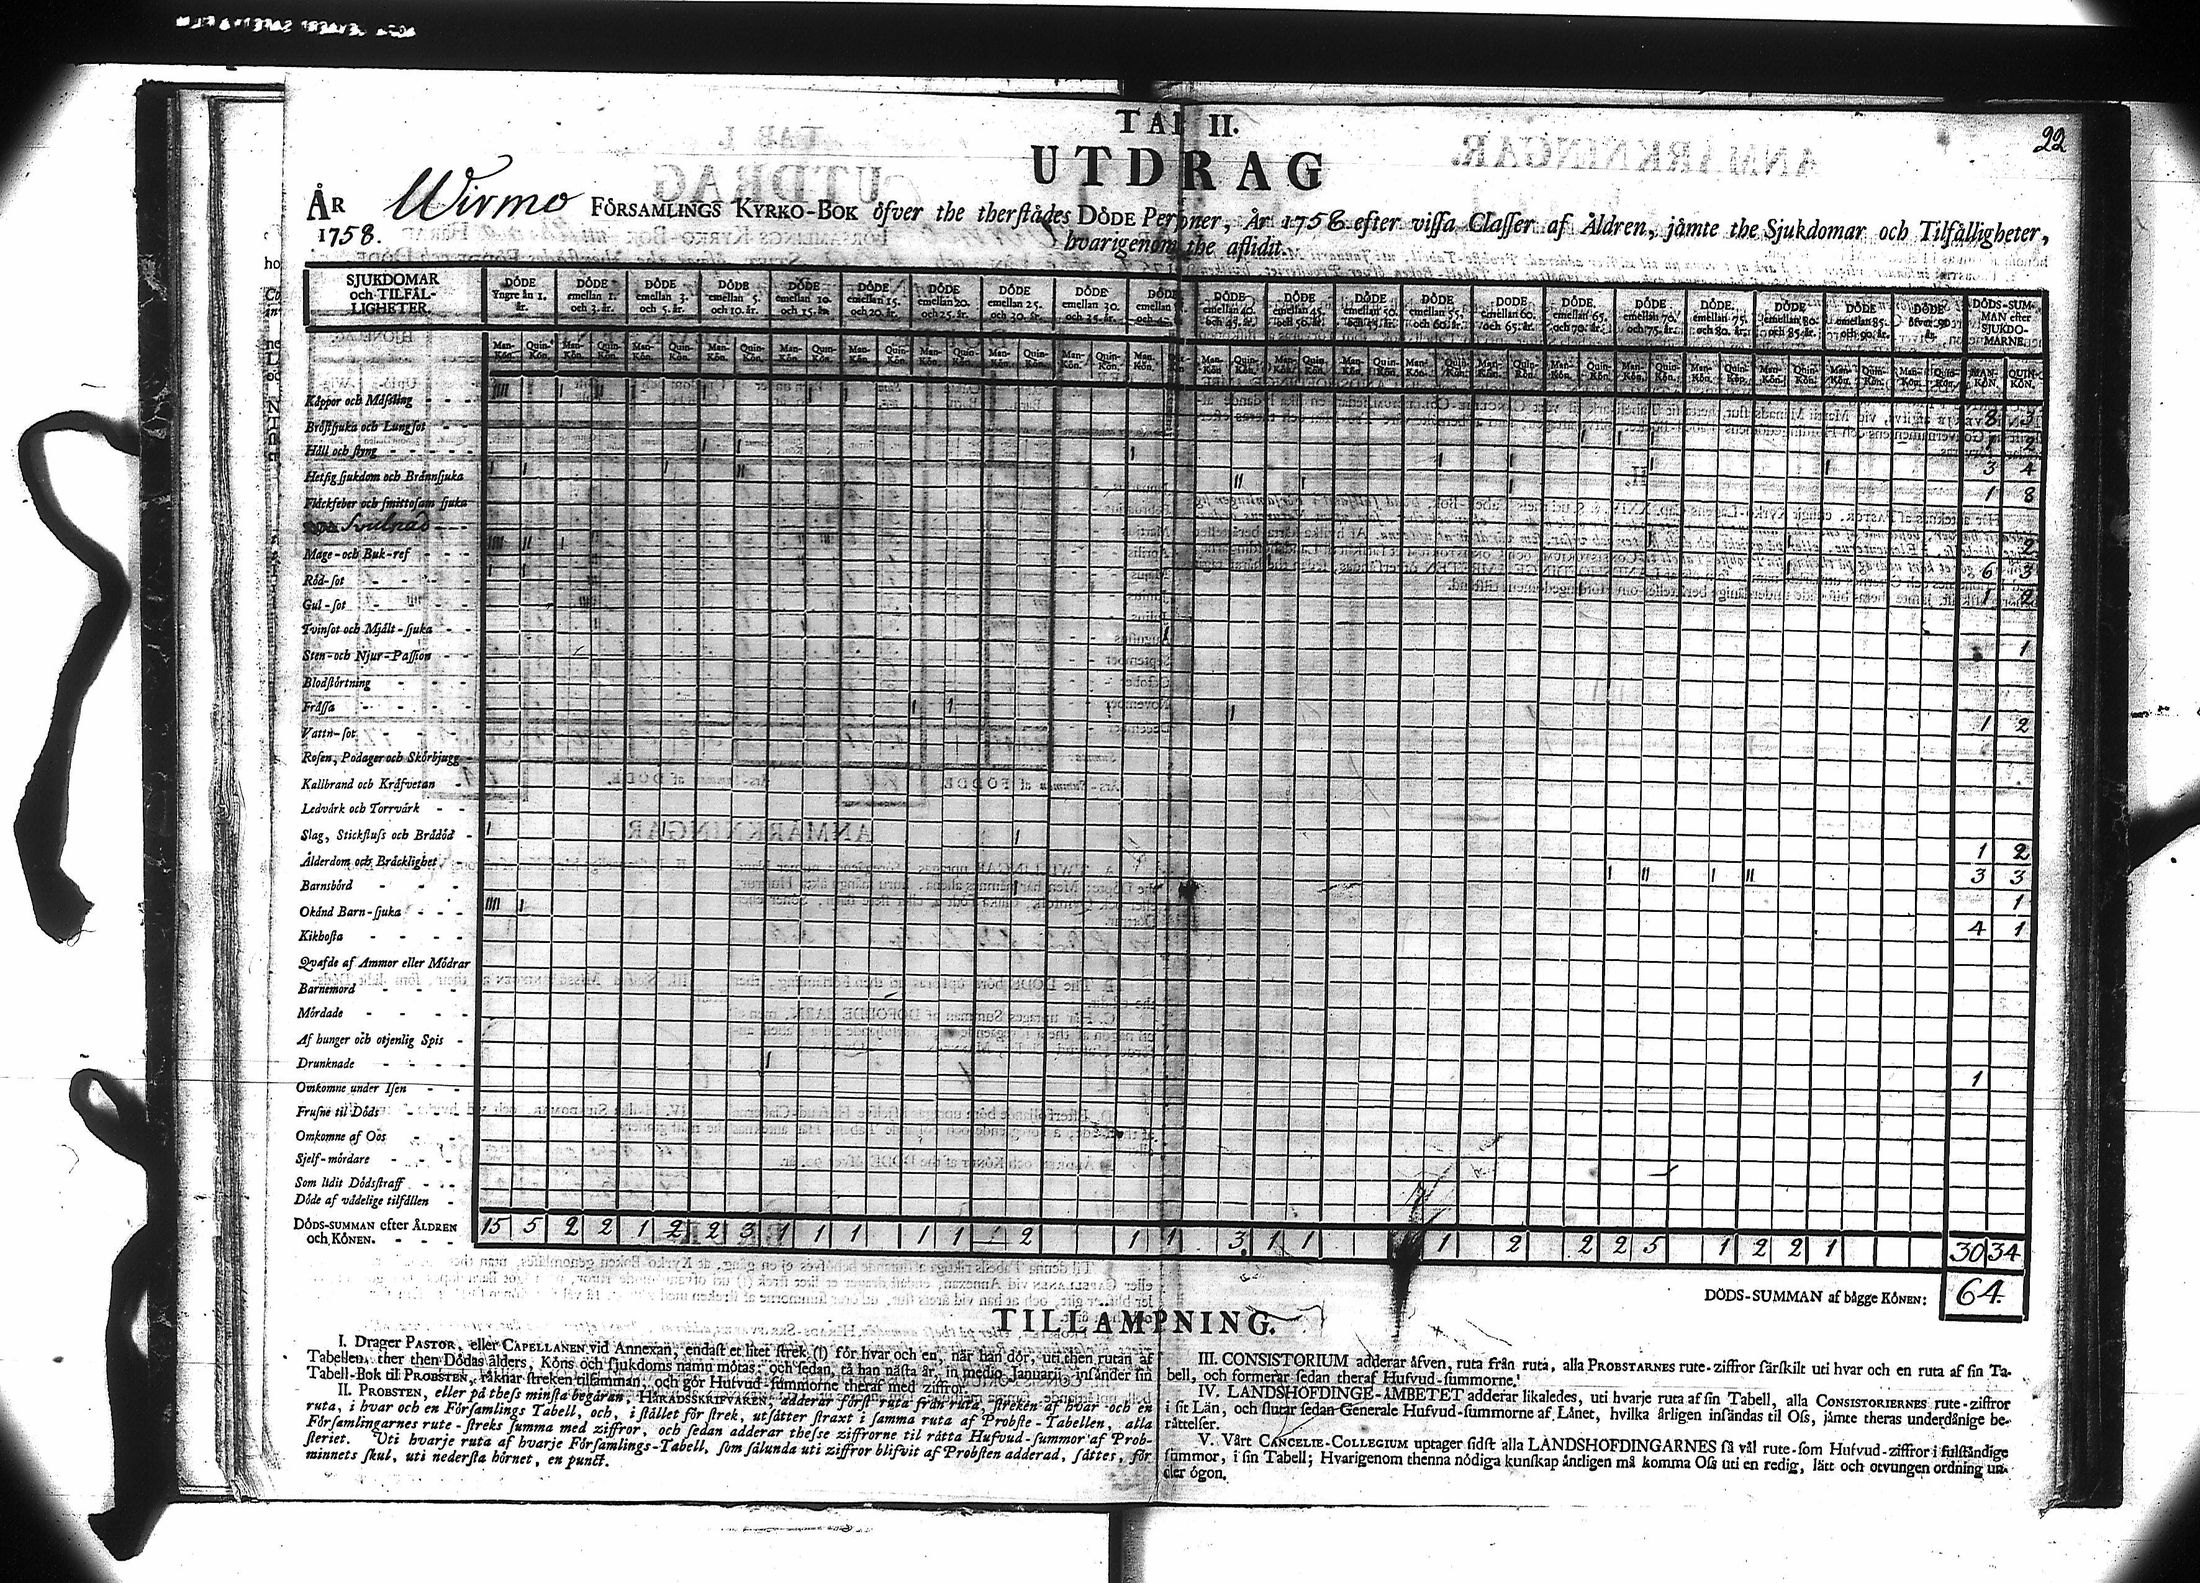 22
TAB II.
UTDRAG
ÅR 1758. Wirmo FÖRSAMLINGS KYRKO-BOK öfver the therstädes DÖDE Personer, År 1758 efter vissa Classer af Åldren, jämte the Sjukdomar och Tilfälligheter,
hvarigenom the aflidit.
SJUKDOMAR och TILFÄL-LIGHETER.
DÖDE Yngre än 1. år.
DÖDE emellan 1. och 3. år.
DÖDE emellan 3. och 5. år.
DÖDE emellan 5. och 10. år.
DÖDE emellan 10. och 15. år.
DÖDE emellan 15. och 20. år.
DÖDE emellan 20. och 25. år.
DÖDE emellan 25. och 30. år.
DÖDE emellan 30. och 35. år.
DÖDE emellan 40. och 45. år.
DÖDE emellan 45. och 50. år.
DÖDE emellan 50. och 55. år.
DÖDE emellan 55. och 60. år.
DÖDE emellan 60. och 65. år.
DÖDE emellan 65. och 70. år.
DÖDE emellan 70. och 75. år.
DÖDE emellan 75. och 80. år.
DÖDE emellan 80. och 85. år.
DÖDE emellan 85. och 90. år.
DÖDE öfver 90 år.
DÖDS-SUMMAN efter SJUKDOMARNE.
Man-Kön. Quin-Kön.
MAN-KÖN. QUIN-KÖN.
Koppor och Mäsling - - - 8 3
Bröstsjuka och Lungsot - - 1 2
Håll och styng - - - - 3 4
Hetsig sjukdom och Brännsjuka 1 8
Fläckfeber och smittosam sjuka
Svulnad 2
Mage- och Buk-ref - - 6 3
Röd-sot - - - - 1 2
Gul-sot - - - -
Tvinsot och Mjält-sjuka - - 1
Sten- och Njur-Passion - -
Blodstörtning - - -
Frässa - - - - - 1 2
Vattn-sot - - - -
Rosen, Podager och Skörbjugg
Kallbrand och Kräfvetan - -
Ledvärk och Torrvärk - -
Slag, Stickfluss och Brådöd - 1 2
Ålderdom och Bräcklighet - 3 3
Barnsbörd - - - - 1
Okänd Barn-sjuka - - - 4 1
Kikhosta - - - -
Qvafde af Ammor eller Mödrar
Barnemord - - - -
Mördade - - - -
Af hunger och otjenlig Spis -
Drunknade - - - - 1
Omkomne under Isen - -
Frusne til Döds - - -
Omkomne af Oos - -
Sjelf-mördare - - -
Som lidit Dödsstraff - -
Döde af vådelige tilfällen - -
DÖDS-SUMMAN efter ÅLDREN och KÖNEN. - - - 15 5 2 2 1 2 2 3 1 1 1 1 1 1 2 1 1 3 1 1 1 2 2 2 5 1 2 2 1 30 34
DÖDS-SUMMAN af bägge KÖNEN: 64.
TILLÄMPNING.
I. Drager PASTOR, eller CAPELLANEN vid Annexan, endast et litet strek (|) för hvar och en, när han dör, uti then rutan af
Tabellen, ther then Dödas ålders, Köns och sjukdoms namn mötas: och sedan, tå han nästa år, in medio Januarii, insänder sin
Tabell-Bok til PROBSTEN, räknar streken tilsamman, och gör Hufvud-summorne theraf med ziffror.
II. PROBSTEN, eller på thess minsta begäran, HÄRADSSKRIFVAREN, adderar först ruta från ruta, streken af hvar och en
ruta, i hvar och en Församlings Tabell, och, i stället för strek, utsätter straxt i samma ruta af Probste-Tabellen, alla
Församlingarnes rute-streks summa med ziffror, och sedan adderar thesse ziffrorne til rätta Hufvud-summor af Prob-
steriet. Uti hvarje ruta af hvarje Församlings-Tabell, som sålunda uti ziffror blifvit af Probsten adderad, sättes, för
minnets skul, uti nedersta hörnet, en punct.
III. CONSISTORIUM adderar äfven, ruta från ruta, alla PROBSTARNES rute-ziffror särskilt uti hvar och en ruta af sin Ta-
bell, och formerar sedan theraf Hufvud-summorne.
IV. LANDSHÖFDINGE-ÄMBETET adderar likaledes, uti hvarje ruta af sin Tabell, alla CONSISTORIERNES rute-ziffror
i sit Län, och slutar sedan Generale Hufvud-summorne af Länet, hvilka årligen insändas til Oss, jämte theras underdånige be-
rättelser.
V. Vårt CANCELIE-COLLEGIUM uptager sidst alla LANDSHÖFDINGARNES så väl rute-som Hufvud-ziffror i fulständige
summor, i sin Tabell; Hvarigenom thenna nödiga kunskap äntligen må komma Oss uti en redig, lätt och otvungen ordning un-
der ögon.